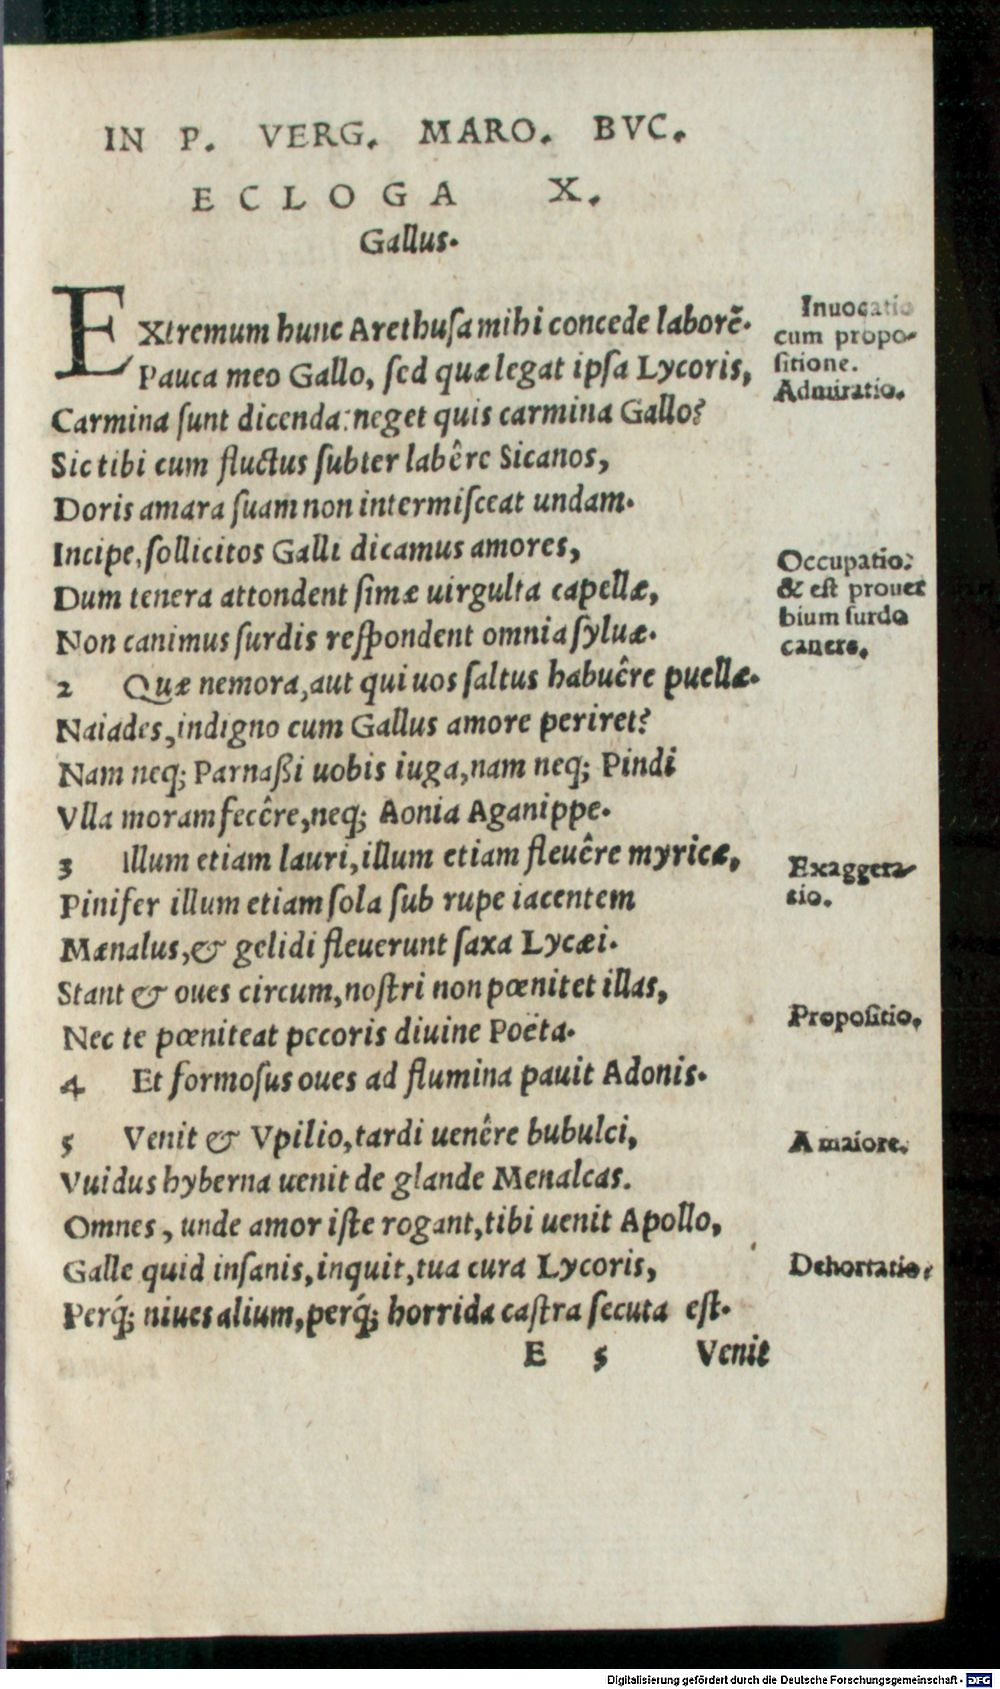 IN P. VERG. MARO. BVC.
ECLOGA X.
Gallus.
EXtremum hunc Arethuſa mihi concede laborē.
Pauca meo Gallo, ſed quæ legat ipſa Lycoris,
Carmina ſunt dicenda: neget quis carmina Gallo?
Sic tibi cum fluctus ſubter labêre Sicanos,
Doris amara ſuam non intermiſceat undam.
Incipe, ſollicitos Galli dicamus amores,
Dum tenera attondent ſimæ uirgulta capellæ,
Non canimus ſurdis reſpondent omnia ſyluæ.
2 Quæ nemora, aut qui uos ſaltus habuêre puellæ.
Naiades, indigno cum Gallus amore periret?
Nam neq; Parnaßi uobis iuga, nam neq; Pindi
Vlla moram fecêre, neq; Aonia Aganippe.
3 Illum etiam lauri, illum etiam fleuêre myricæ,
Pinifer illum etiam ſola ſub rupe iacentem
Mænalus, & gelidi fleuerunt ſaxa Lycæi.
Stant & oues circum, noſtri non pœnitet illas,
Nec te pœniteat pecoris diuine Poëta.
4 Et formoſus oues ad flumina pauit Adonis.
5 Venit & Vpilio, tardi uenêre bubulci,
Vuidus hyberna uenit de glande Menalcas.
Omnes, unde amor iſte rogant, tibi uenit Apollo,
Galle quid inſanis, inquit, tua cura Lycoris,
Perq́; niues alium, perq́; horrida caſtra ſecuta eſt.
E 5 Venit
Inuocatio
cum propo-
ſitione.
Admiratio.
Occupatio:
& eſt prouer
bium ſurdo
canere.
Exaggera-
tio.
Propoſitio.
A maiore.
Dehortatio:
Digitalisierung gefördert durch die Deutsche Forschungsgemeinschaft - DFG